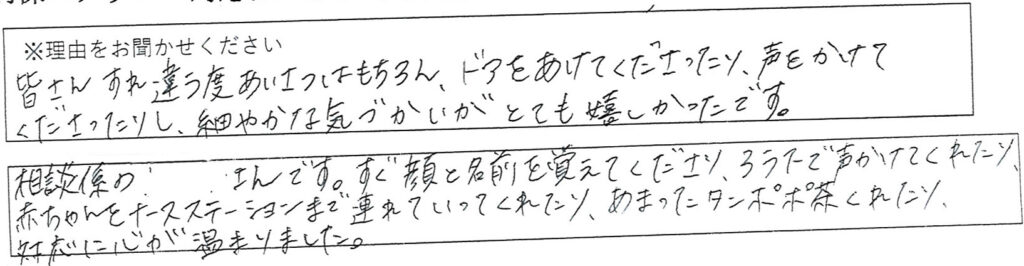 ※理由をお聞かせください
皆さんすれ違う度あいさつはもちろん、ドアをあけてくださったり、声をかけて
くださったりし、細やかな気づかいがとても嬉しかったです。
相談係の さんです。すぐ顔と名前を覚えてくださり、ろうかで声かけてくれたり、
赤ちゃんをナースステーションまで連れていってくれたり、あまったタンポポ茶くれたり、
対応に心が温まりました。